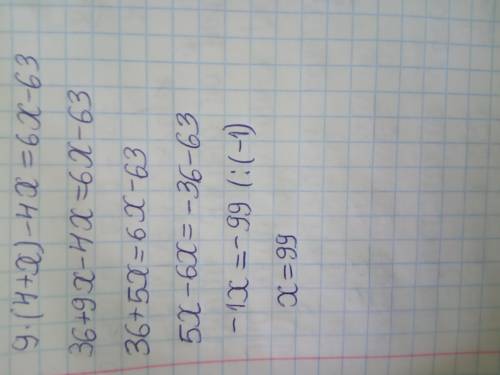 9·(4+x)-4x=6x-63
36+9x-4x=6x-63
36+5x=6x-63
5x-6x=-36-63
-1x=-99 (:(-1)
x=99